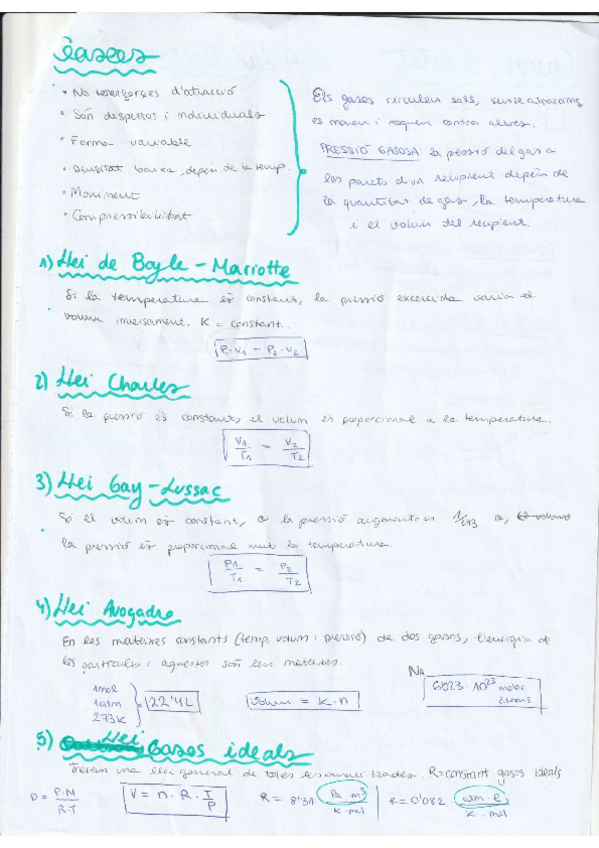 Gasos
• No tenen forces d'atracció
• Són disperses i individuals
• Forma variable
• Densitat baixa, depèn de la temp
• Moviment
• Compressibilitat
Els gasos circulen sols, sense atraccions,
es mouen i xoquen contra altres.
PRESSIÓ GASOSA: la pessió del gas a
les parets d'un recipient depèn de
la quantitat de gas, la temperatura
i el volum del recipient.
1) Llei de Boyle - Mariotte
Si la temperatura és constant, la pressió excercida varia el
volum inversament. K = constant.
P1·V1 = P2·V2
2) Llei Charles
Si la pressió és constant, el volum és proporcional a la temperatura.
V1/T1 = V2/T2
3) Llei Gay-Lussac
Si el volum és constant, la pressió augmenta 1/273
la pressió és proporcional amb la temperatura
P1/T1 = P2/T2
4) Llei Avogadro
En les mateixes constants (temp, volum i pressió) de dos gasos, l'energia de
les partícules i aquestes són les mateixes.
1 mol
1 atm
273 K
22'4 L
Volum = K·n
NA
6023·10²³ molec
àtoms
5) Llei Gasos ideals
una llei general de totes les R=constant gasos ideals
D = P·M/R·T
V = n·R·T/P
R = 8'31 Pa·m³/K·mol
R = 0'082 atm·l/K·mol